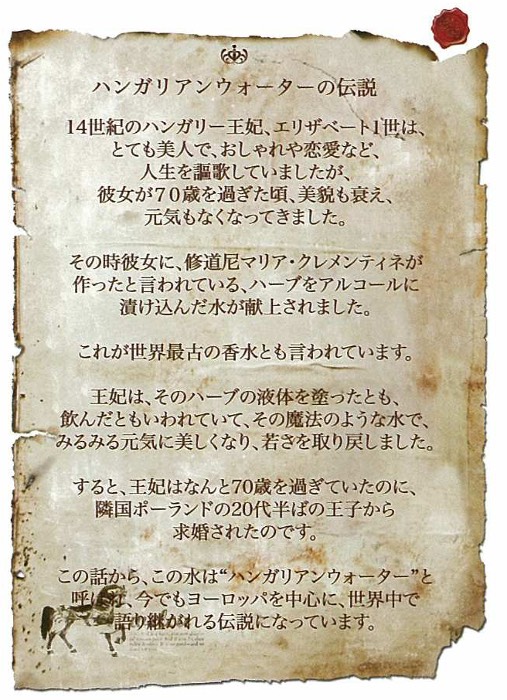 ハンガリアンウォーターの伝説
14世紀のハンガリー王妃、エリザベート1世は、
とても美人で、おしゃれや恋愛など、
人生を謳歌していましたが、
彼女が70歳を過ぎた頃、美貌も衰え、
元気もなくなってきました。
その時彼女に、修道尼マリア・クレメンティネが
作ったと言われている、ハーブをアルコールに
漬け込んだ水が献上されました。
これが世界最古の香水とも言われています。
王妃は、そのハーブの液体を塗ったとも、
飲んだともいわれていて、その魔法のような水で、
みるみる元気に美しくなり、若さを取り戻しました。
すると、王妃はなんと70歳を過ぎていたのに、
隣国ポーランドの20代半ばの王子から
求婚されたのです。
この話から、この水は“ハンガリアンウォーター”と
呼ばれ、今でもヨーロッパを中心に、世界中で
語り継がれる伝説になっています。